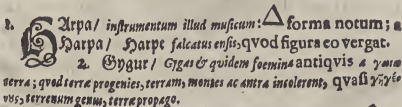 1. Harpa / instrumentum illud musicum: △ forma notum; a
Harpa / Harpe falcatus ensis, qvod figura eo vergat.
2. Gygur / Gygas & quidem foemina antiqvis a
terra; quod terræ progenies, terram, montes ac antra incolerent, qvasi
terrenum genus, terræ propago.